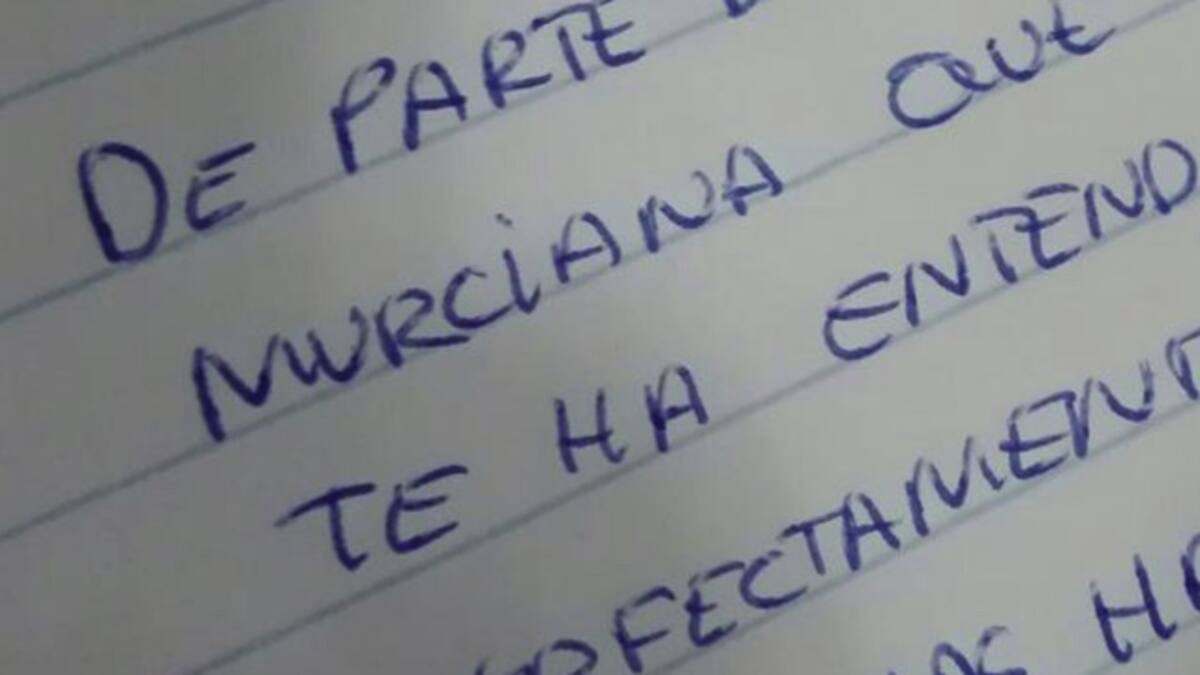 DE PARTE
MURCIANA QUE
TE HA ENTEND
FECTAMENT